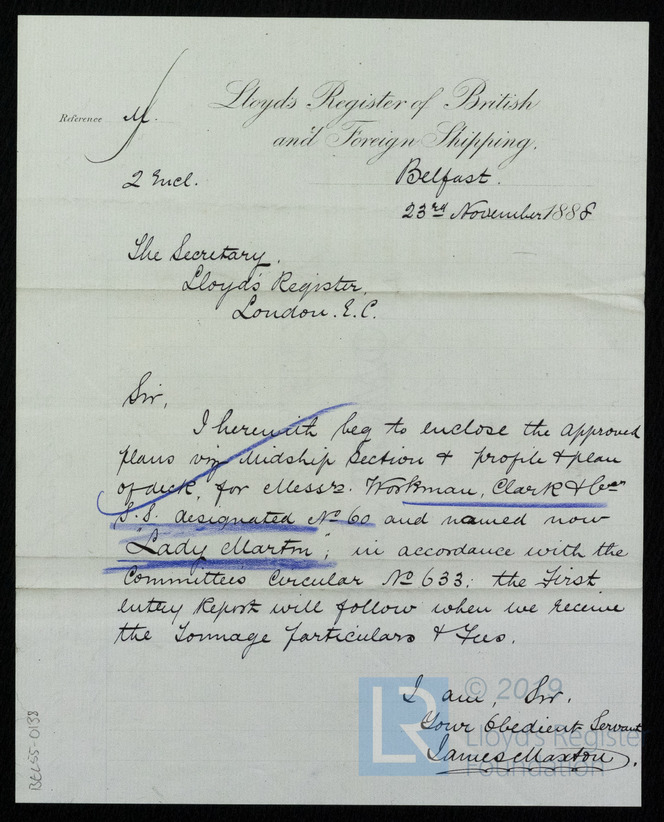 Lloyds Register of British
and Foreign Shipping.
Reference M.
2 Encl.
Belfast.
23rd November 1888
The Secretary.
Lloyd's Register.
London. E.C.
Sir,
I herewith beg to enclose the approved
plans viz Midship Section & profile & plan
of deck, for Messrs. Workman, Clark & Co's
S.S. designated No 60 and named now
"Lady Martin"; in accordance with the
Committee's Circular No 633: the First
entry Report will follow when we receive
the Tonnage particulars & Fees.
I am, Sir.
Your Obedient Servant
James Maxton.
BEL55-0138
LR © 2019
Lloyd's Register
Foundation